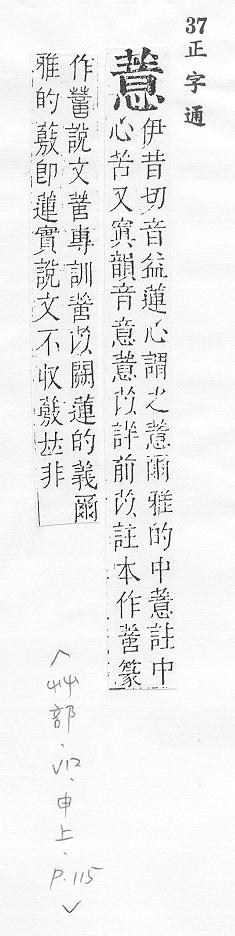 37
正字通
薏
伊昔切音益蓮心謂之薏爾雅的中薏註中
心苦又寘韻音意薏苡詳前苡註本作篆
作說文專訓苡闕蓮的義爾
雅的薂卽蓮實說文不收薂𠀤非
〈艸部·V12·申上·P.115〉